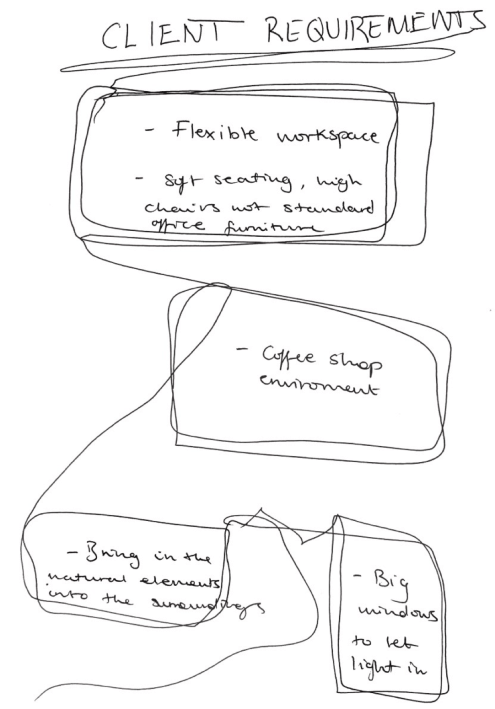 CLIENT REQUIREMENTS
- Flexible workspace
- Soft seating, high
chairs not standard
office furniture
- Coffee shop
enviroment
- Bring in the
natural elements
into the surroundings
- Big
windows
to let
light in